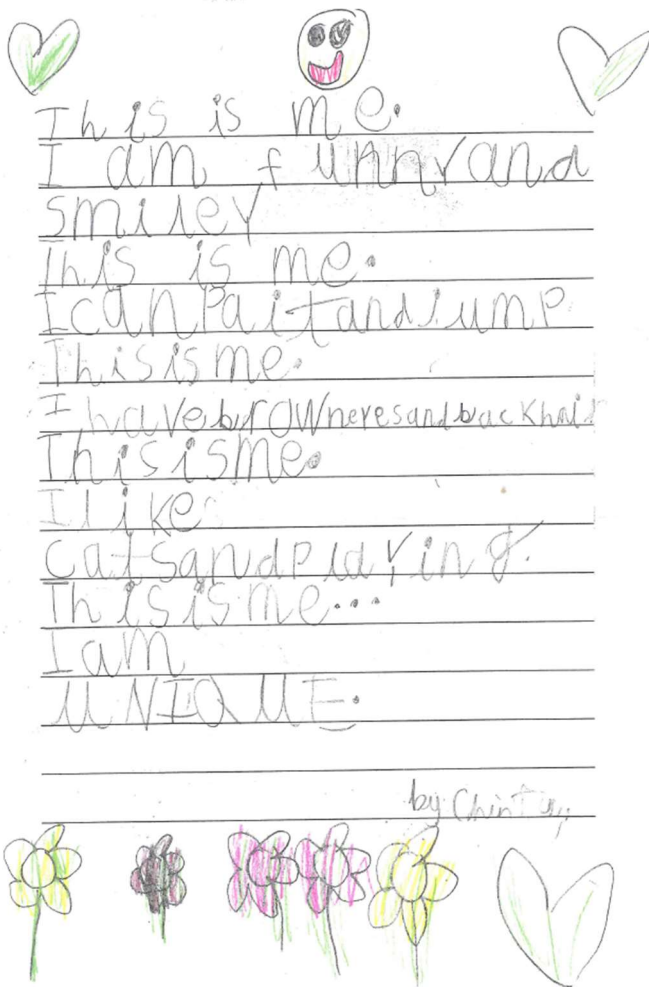 This is me.
I am funny and
smiley
This is me.
I can Pait and jump
This is me.
I have brown eyes and back hair
This is me.
I like
cats and playing.
This is me...
I am
UNIQUE.
by